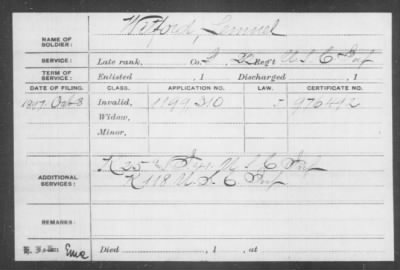 NAME OF SOLDIER: Wilford, Lemuel
SERVICE: Late rank, Co. Reg't U.S.C. Inf
TERM OF SERVICE: Enlisted , 1 Discharged , 1
DATE OF FILING. CLASS. APPLICATION NO. LAW. CERTIFICATE NO.
1897. Oct 8 Invalid, 1199210 976492
Widow,
Minor,
ADDITIONAL SERVICES: K 25 U.S.C. Inf
K 118 U.S.C. Inf
Died , 1 , at